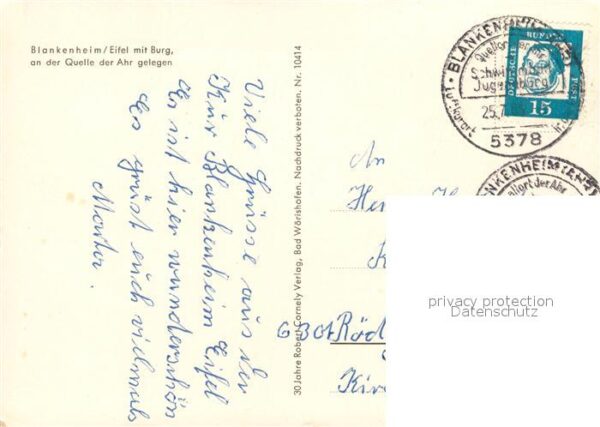 Blankenheim/Eifel mit Burg,
an der Quelle der Ahr gelegen
Viele Grüsse aus der
Kur Blankenheim Eifel
Es ist hier wunderschön
Es grüst euch vielmals
30 Jahre Robert Cornely Verlag, Bad Wörishofen. Nachdruck verboten. Nr. 10414
BLANKENHEIM
Quellort der Ahr
Jugendburg
25.7.
5378
DEUTSCHE BUNDESPOST
15
BLANKENHEIM (AHR)
Quellort der Ahr
An
6301 Röd
privacy protection
Datenschutz